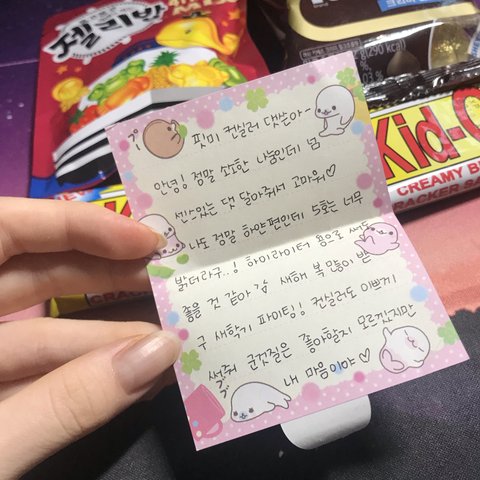 젤리밥
290 kcal)
Kid-O
CREAMY B
CRACKER SA
핏미 컨실러 댓쓴아~
안녕! 정말 소소한 나눔인데 넘
센스있는 댓 달아줘서 고마워♡
나도 정말 하얀편인데 5호는 너무
밝더라구..! 하이라이터 용으로 써두
좋을 것 같아 새해 복 많이 받
구 새학기 파이팅! 컨실러도 이쁘게
써줘 군것질은 좋아할지 모르겠지만
내 마음이야♡